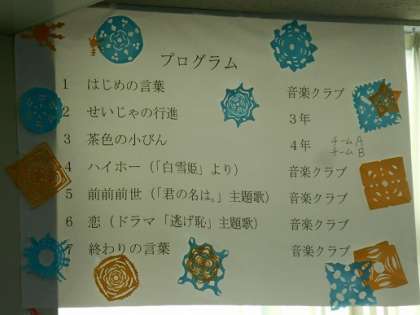 プログラム
1 はじめの言葉 音楽クラブ
2 せいじゃの行進 3年
3 茶色の小びん 4年 チームA チームB
4 ハイホー(「白雪姫」より) 音楽クラブ
5 前前前世(「君の名は。」主題歌) 音楽クラブ
6 恋(ドラマ「逃げ恥」主題歌) 音楽クラブ
7 終わりの言葉 音楽クラブ